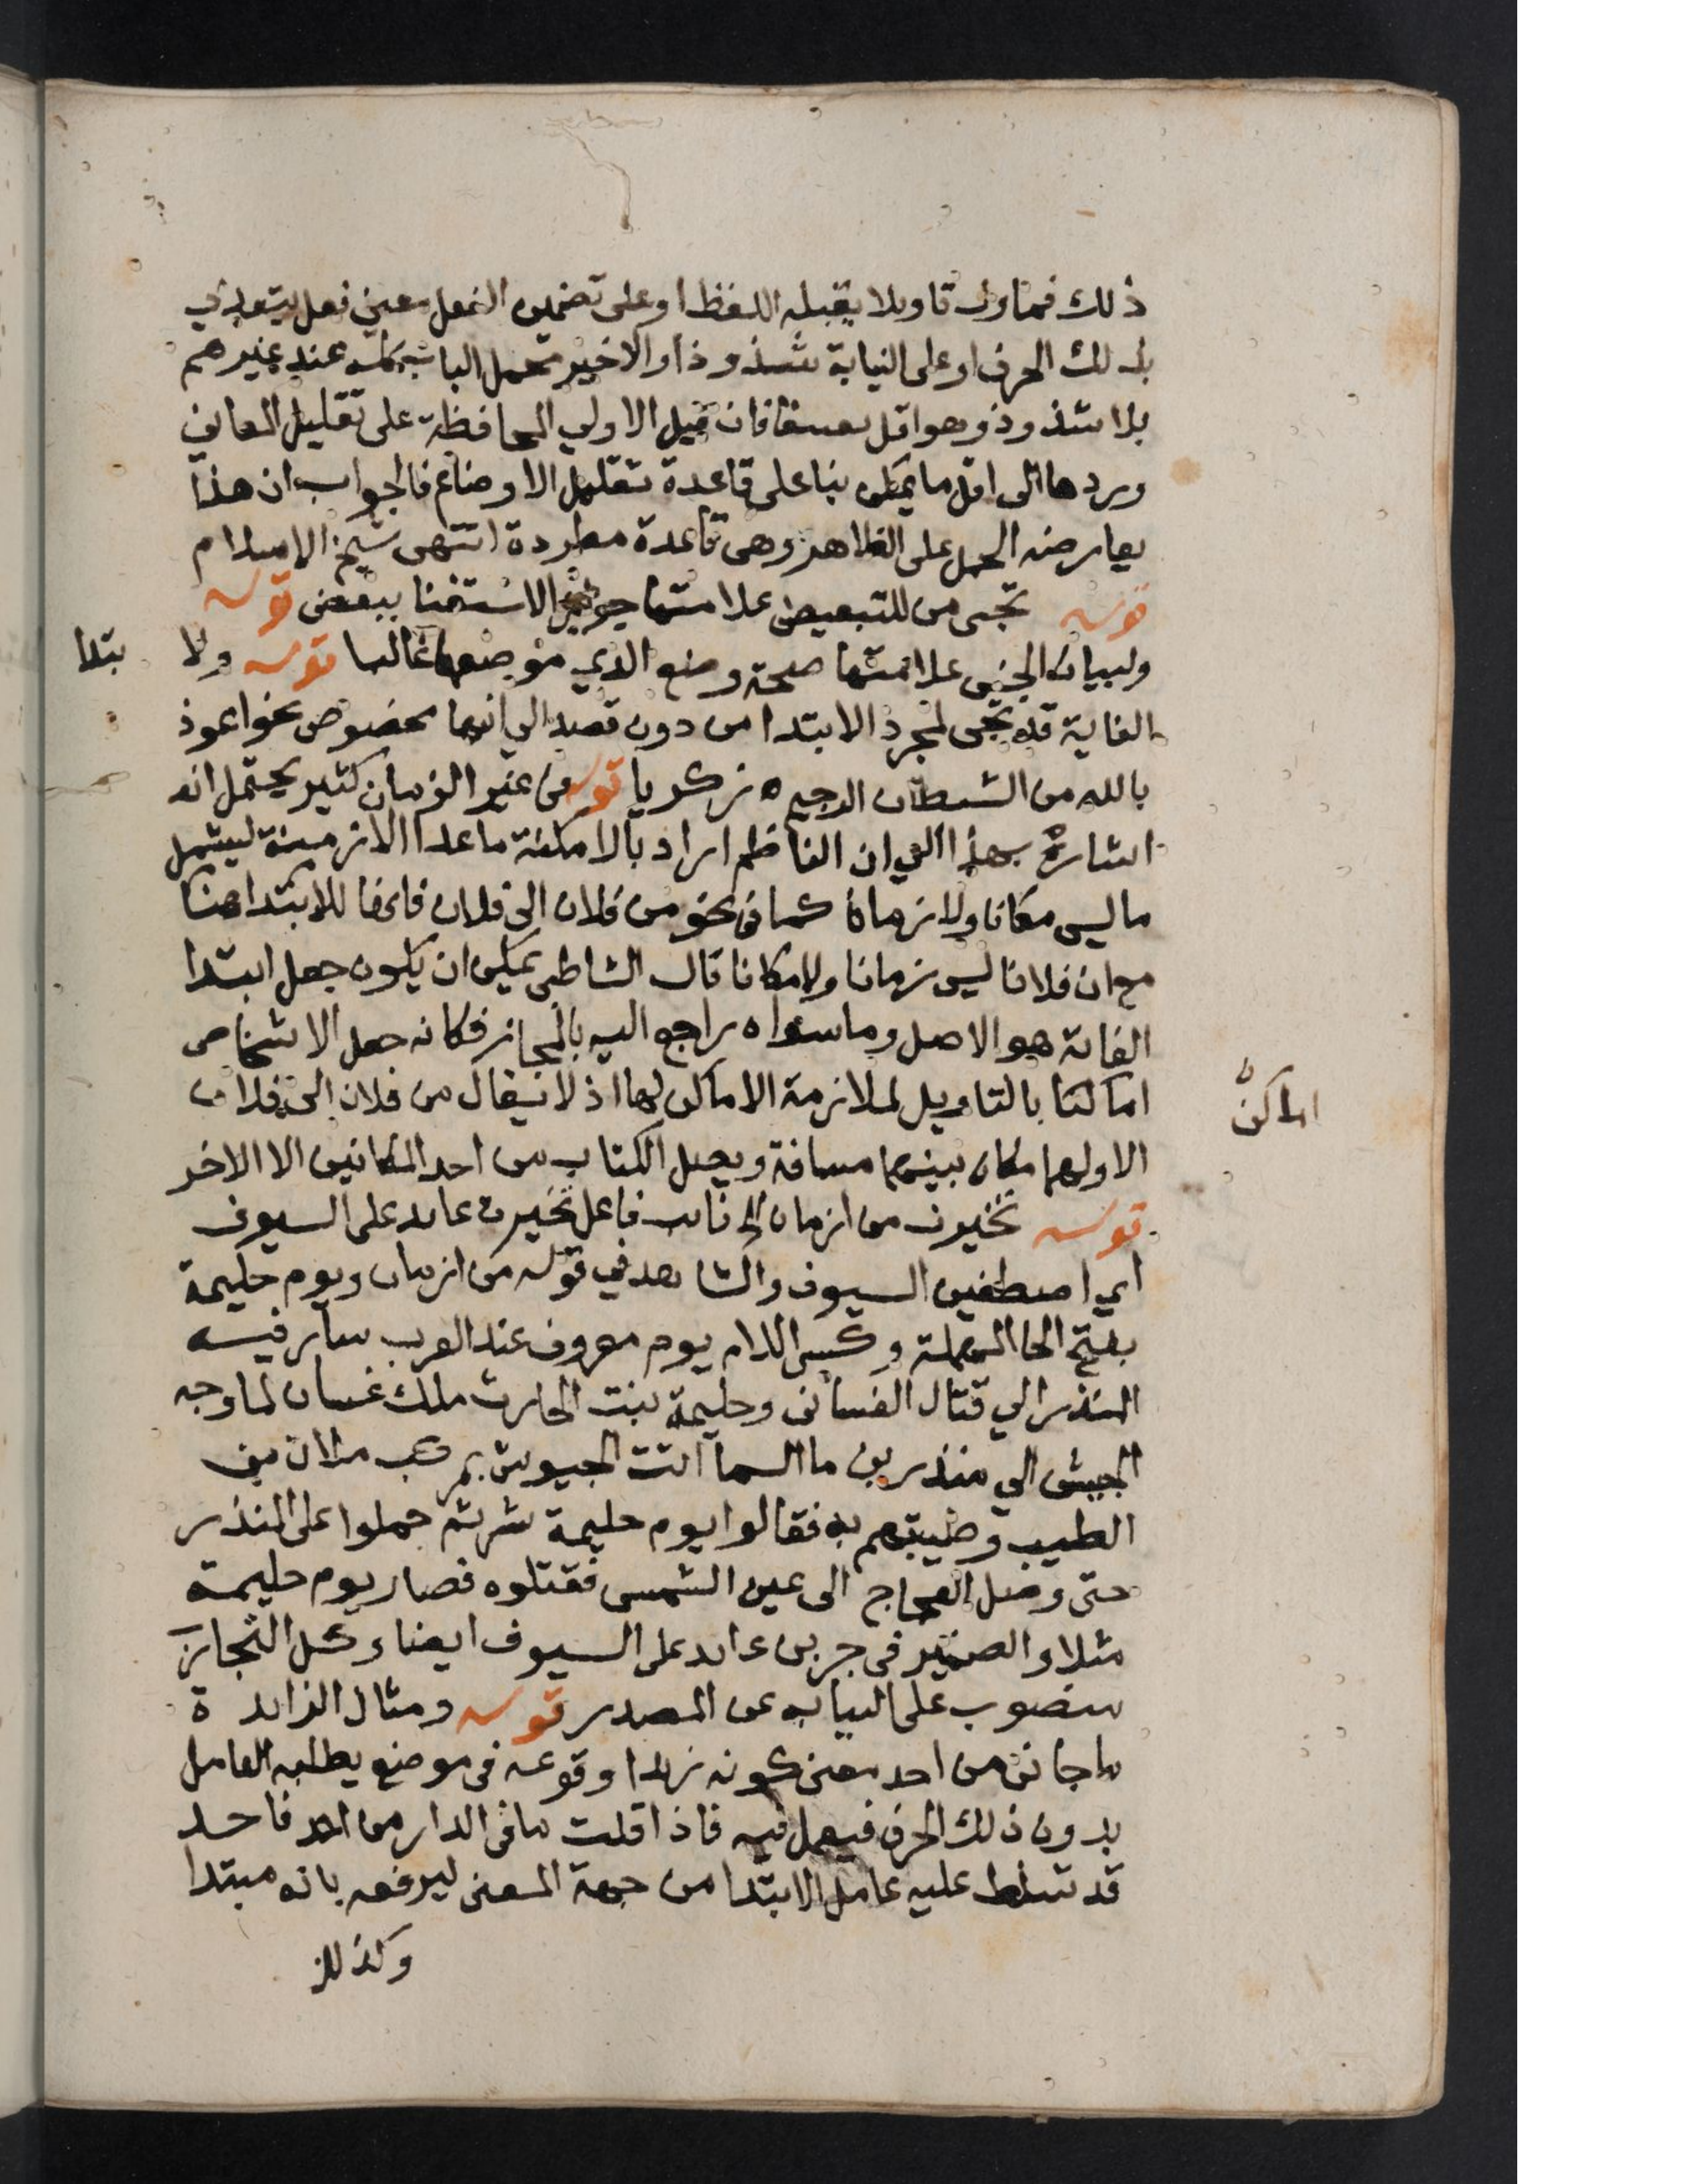 ذلك فماول تاويلا يقبله اللفظ او على تضمين الفعل معنى فعل يتعدي
بذلك الحرف او على النيابة شذوذا والاخير محمل الباب كله عند غيرهم
بلا شذوذ وهو اقل تعسفا فان قيل الاولي المحافظة على تقليل المعاني
وردها الى اقل ما يمكن بنا على قاعدة تقليل الاوضاع فالجواب ان هذا
يعارضه الحمل على الظاهر وهى قاعدة مطردة انتهى شيخ الاسلام
قوله تجى من للتبعيض علامتها جواز الاستغنا ببعض قوله
ولبيان الجنس علامتها صحة وضع الذي موضعها غالبا قوله ولا بتدا
الغاية قد تجى لمجرد الابتدا من دون قصد الي انتها مخصوص نحو اعوذ
بالله من الشيطان الرجيم ه زكريا قوله من غير الزمان كثير يحتمل انه
اشارة بهذا الي ان الناظم اراد بالامكنة ما عدا الازمنة ليشمل
ما ليس مكانا ولا زمانا كما في نحو من فلان الى فلان فانها للابتدا هنا
مع ان فلانا ليس زمانا ولا مكانا قال الشاطبى يمكن ان يكون جعل ابتدا
الغاية هو الاصل وما سواه راجع اليه بالمجاز فكانه جعل الاشخاص
اماكنا بالتاويل لملازمة الاماكن لها اذ لا يقال من فلان الى فلان
اماكن
الا ولهما مكان بينهما مسافة ويصل الكتاب من احد المكانين الا الاخر
قوله تخيرن من ازمان الخ نائب فاعل تخيرن عايد على السيوف
اي اصطفين السيوف والشاهد في قوله من ازمان ويوم حليمة
بفتح الحا المهملة وكسر اللام يوم معروف عند العرب سار فيه
المنذر الي قتال الغسانى وحليمة بنت الحارث ملك غسان لما وجه
الجيش الي منذر بن ما السما اتت الجيوش بمركب ملان من
الطيب وطيبتهم به فقالوا يوم حليمة شر ثم حملوا على المنذر
حتى وصل العجاج الى عين الشمس فقتلوه فصار يوم حليمة
مثلا والضمير فى جربن عايد على السيوف ايضا وكل التجارب
منصوب على النيابه عن المصدر قوله ومثال الزايدة
ما جانى من احد معنى كونه زايدا وقوعه فى موضع يطلبه العامل
بدون ذلك الحرف فيعمل فيه فاذا قلت ما فى الدار من احد فاحد
قد تسلط عليه عامل الابتدا من جهة المعنى ليرفعه بانه مبتدا
وكذلك